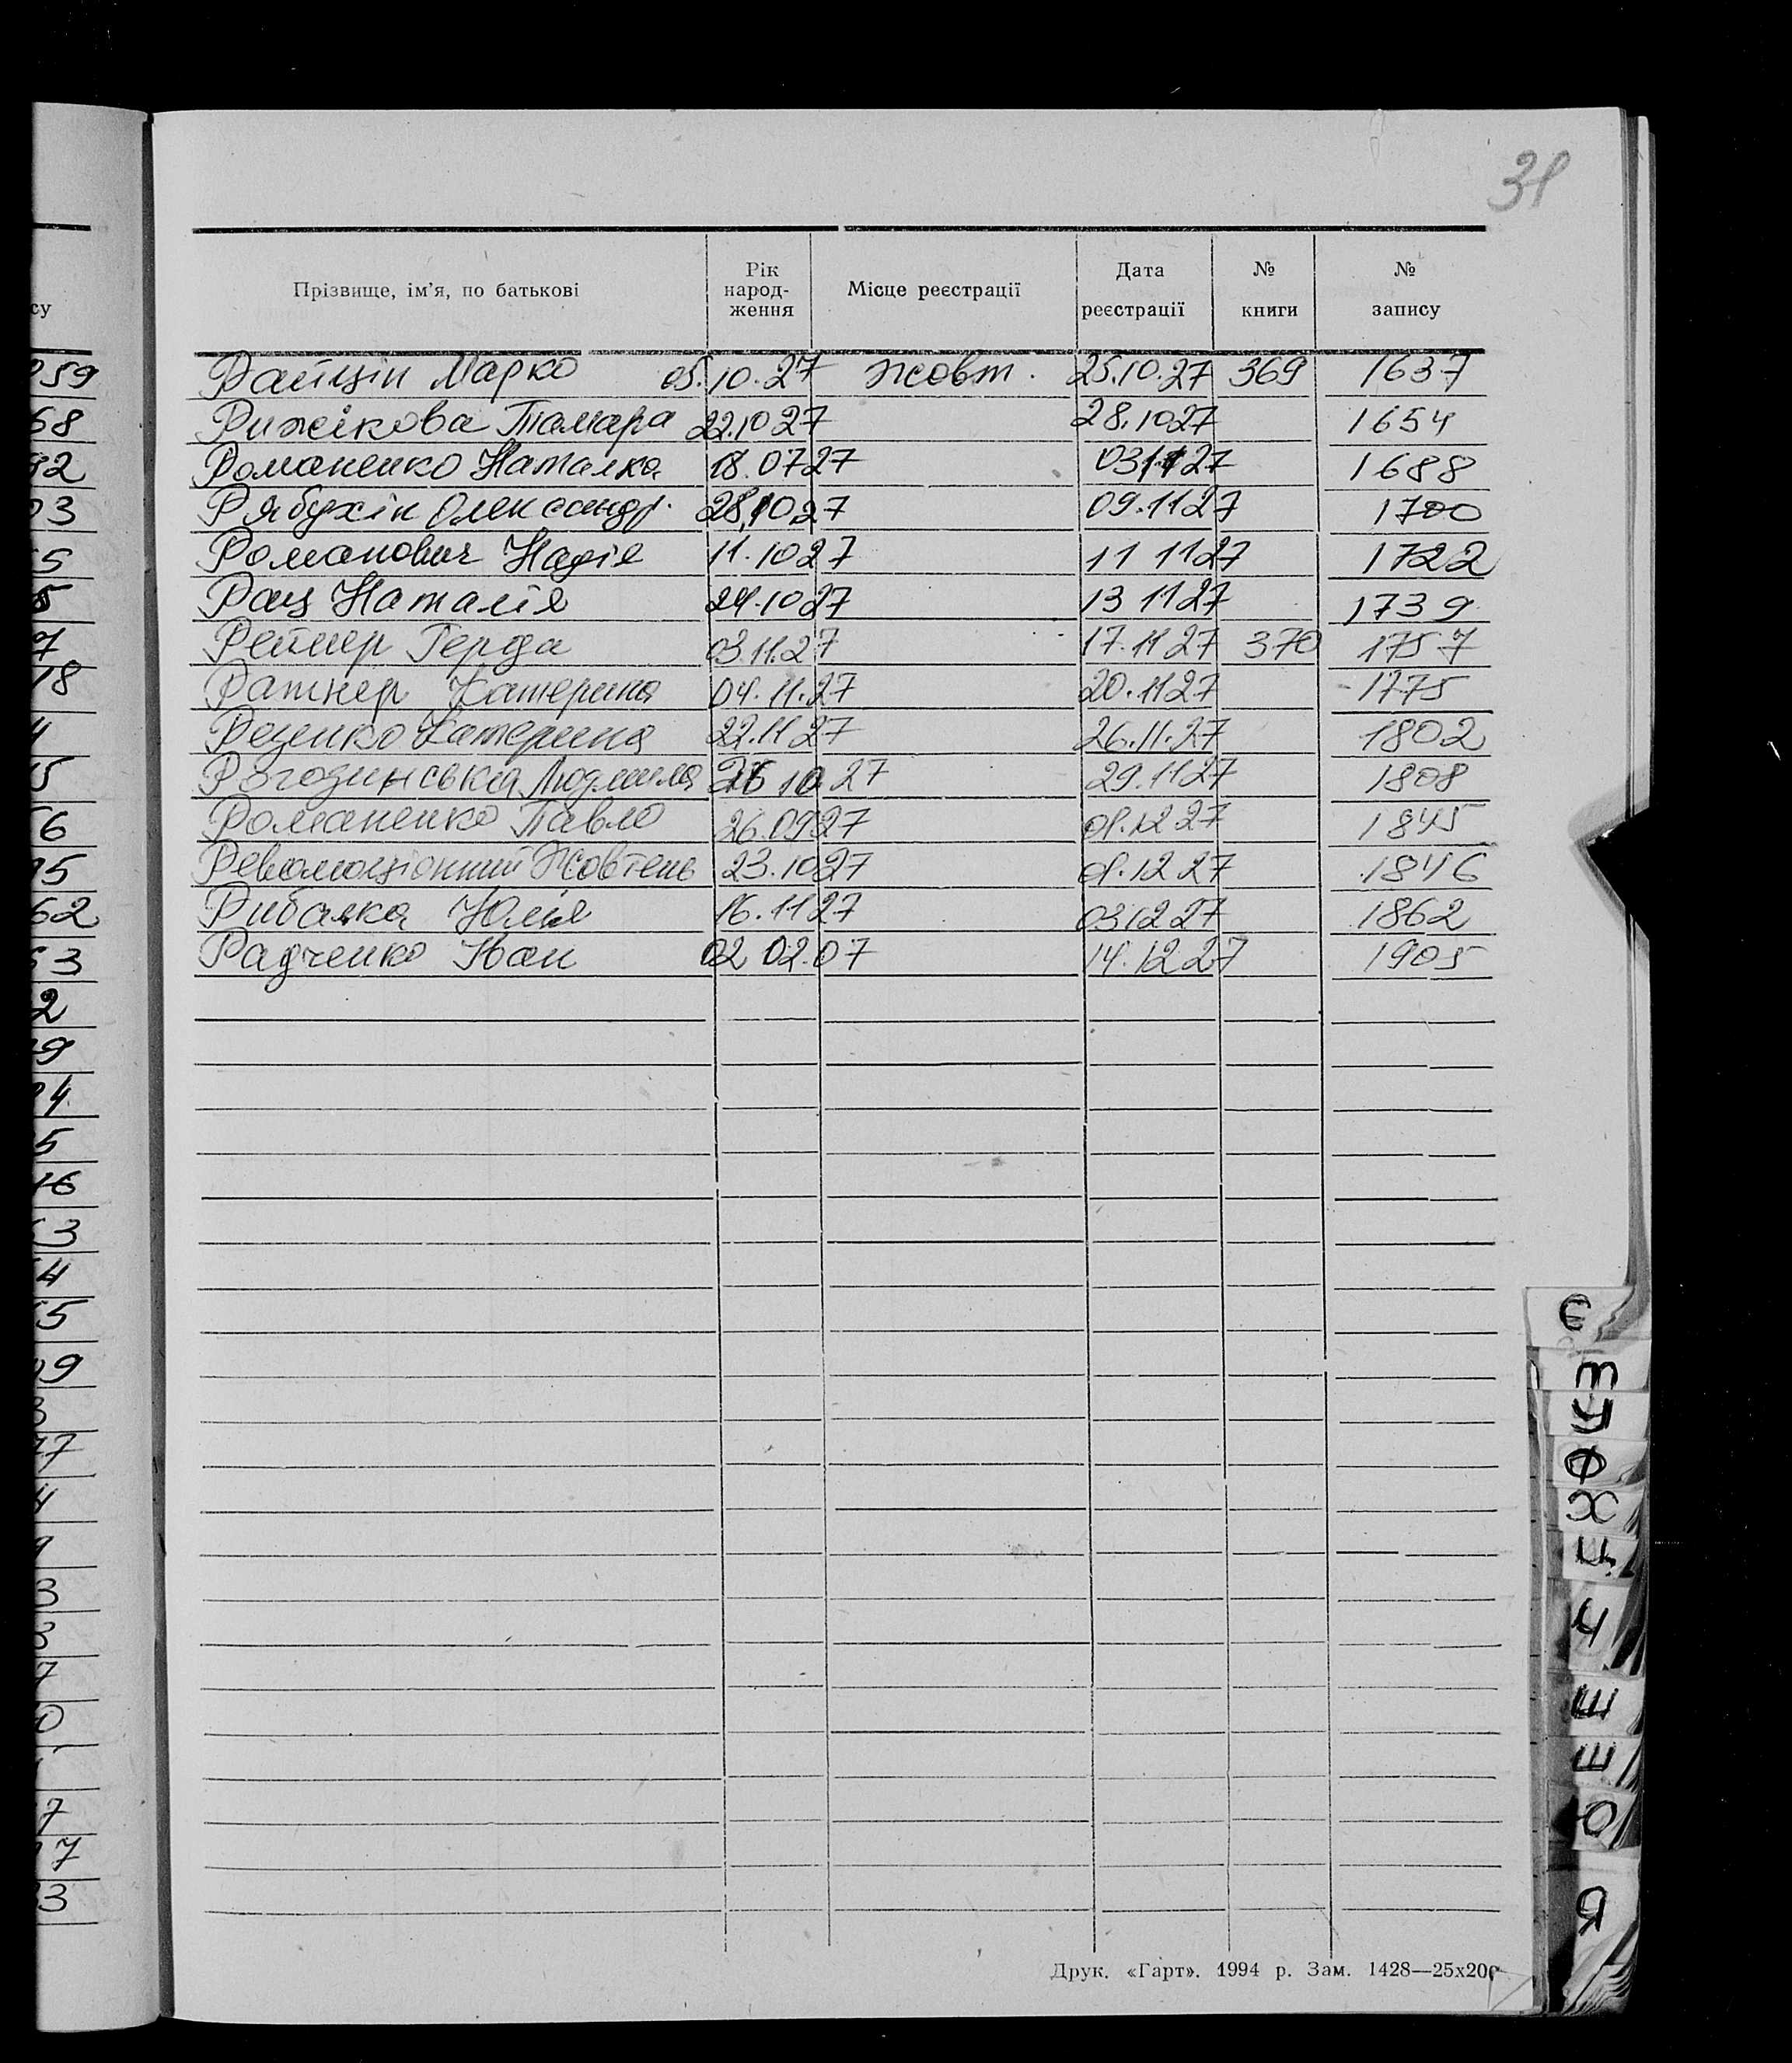 31
Прізвище, ім'я, по батькові Рік народ- ження Місце реєстрації Дата реєстрації № книги № запису
Райцін Марко 05.10.27 Жовт. 25.10.27 369 1637
Рижікова Тамара 22.10 27 28.10 27 1654
Романенко Наталка 18.07 27 1688
Рябухін Олександр. 28.10.27 09.11 27 1700
Романович Надія 11.10 27 11 11 27 1722
Рац Наталія 24.10 27 13 11 27 1739
Реймер Герда 03.11.27 17.11 27 370 1757
Ратнер Катерина 04.11.27 20.11 27 1775
Резенко Катерина 22.11 27 26.11.27 1802
Рогодинська Людмила 10.27 29.11 27 1808
Романенко Павло 26.09 27 01.12 27 1845
Революціонний Жовтень 23.10 27 01.12 27 1846
Рибалка Юлія 16.11 27 03 12 27 1862
Радченко Іван 02 02.07 14.12 27 1905
Є
Т
У
Ф
Х
Ц
Ч
Ш
Щ
Ю
Я
Друк. «Гарт». 1994 р. Зам. 1428—25х200